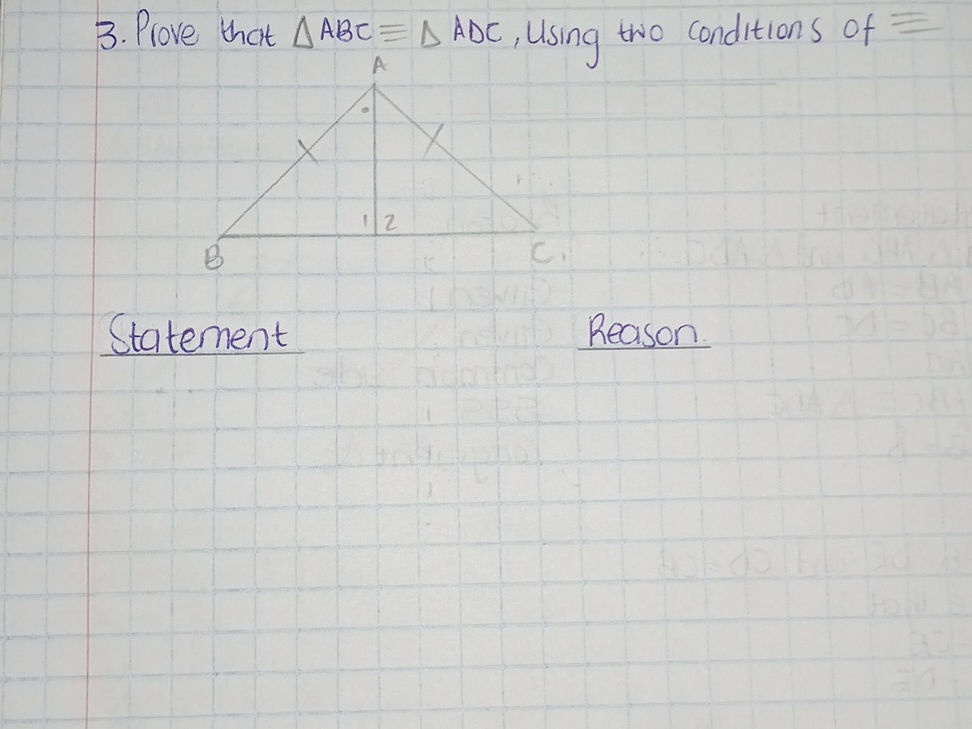 3. Prove that △ABC ≡ △ADC, Using two conditions of ≡
A
1 2
B C.
Statement Reason.